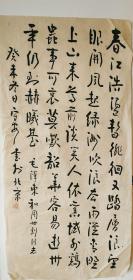 春江浩蕩暫徘徊又踏層峰望
眼開風起綠洲吹浪去雨從青野
上山来尊前談笑人依舊域外鷄
蟲事可哀莫嘆韶華容易逝卅
年仍到赫曦臺 毛澤東和周世釗同志
癸未冬日 書於北京